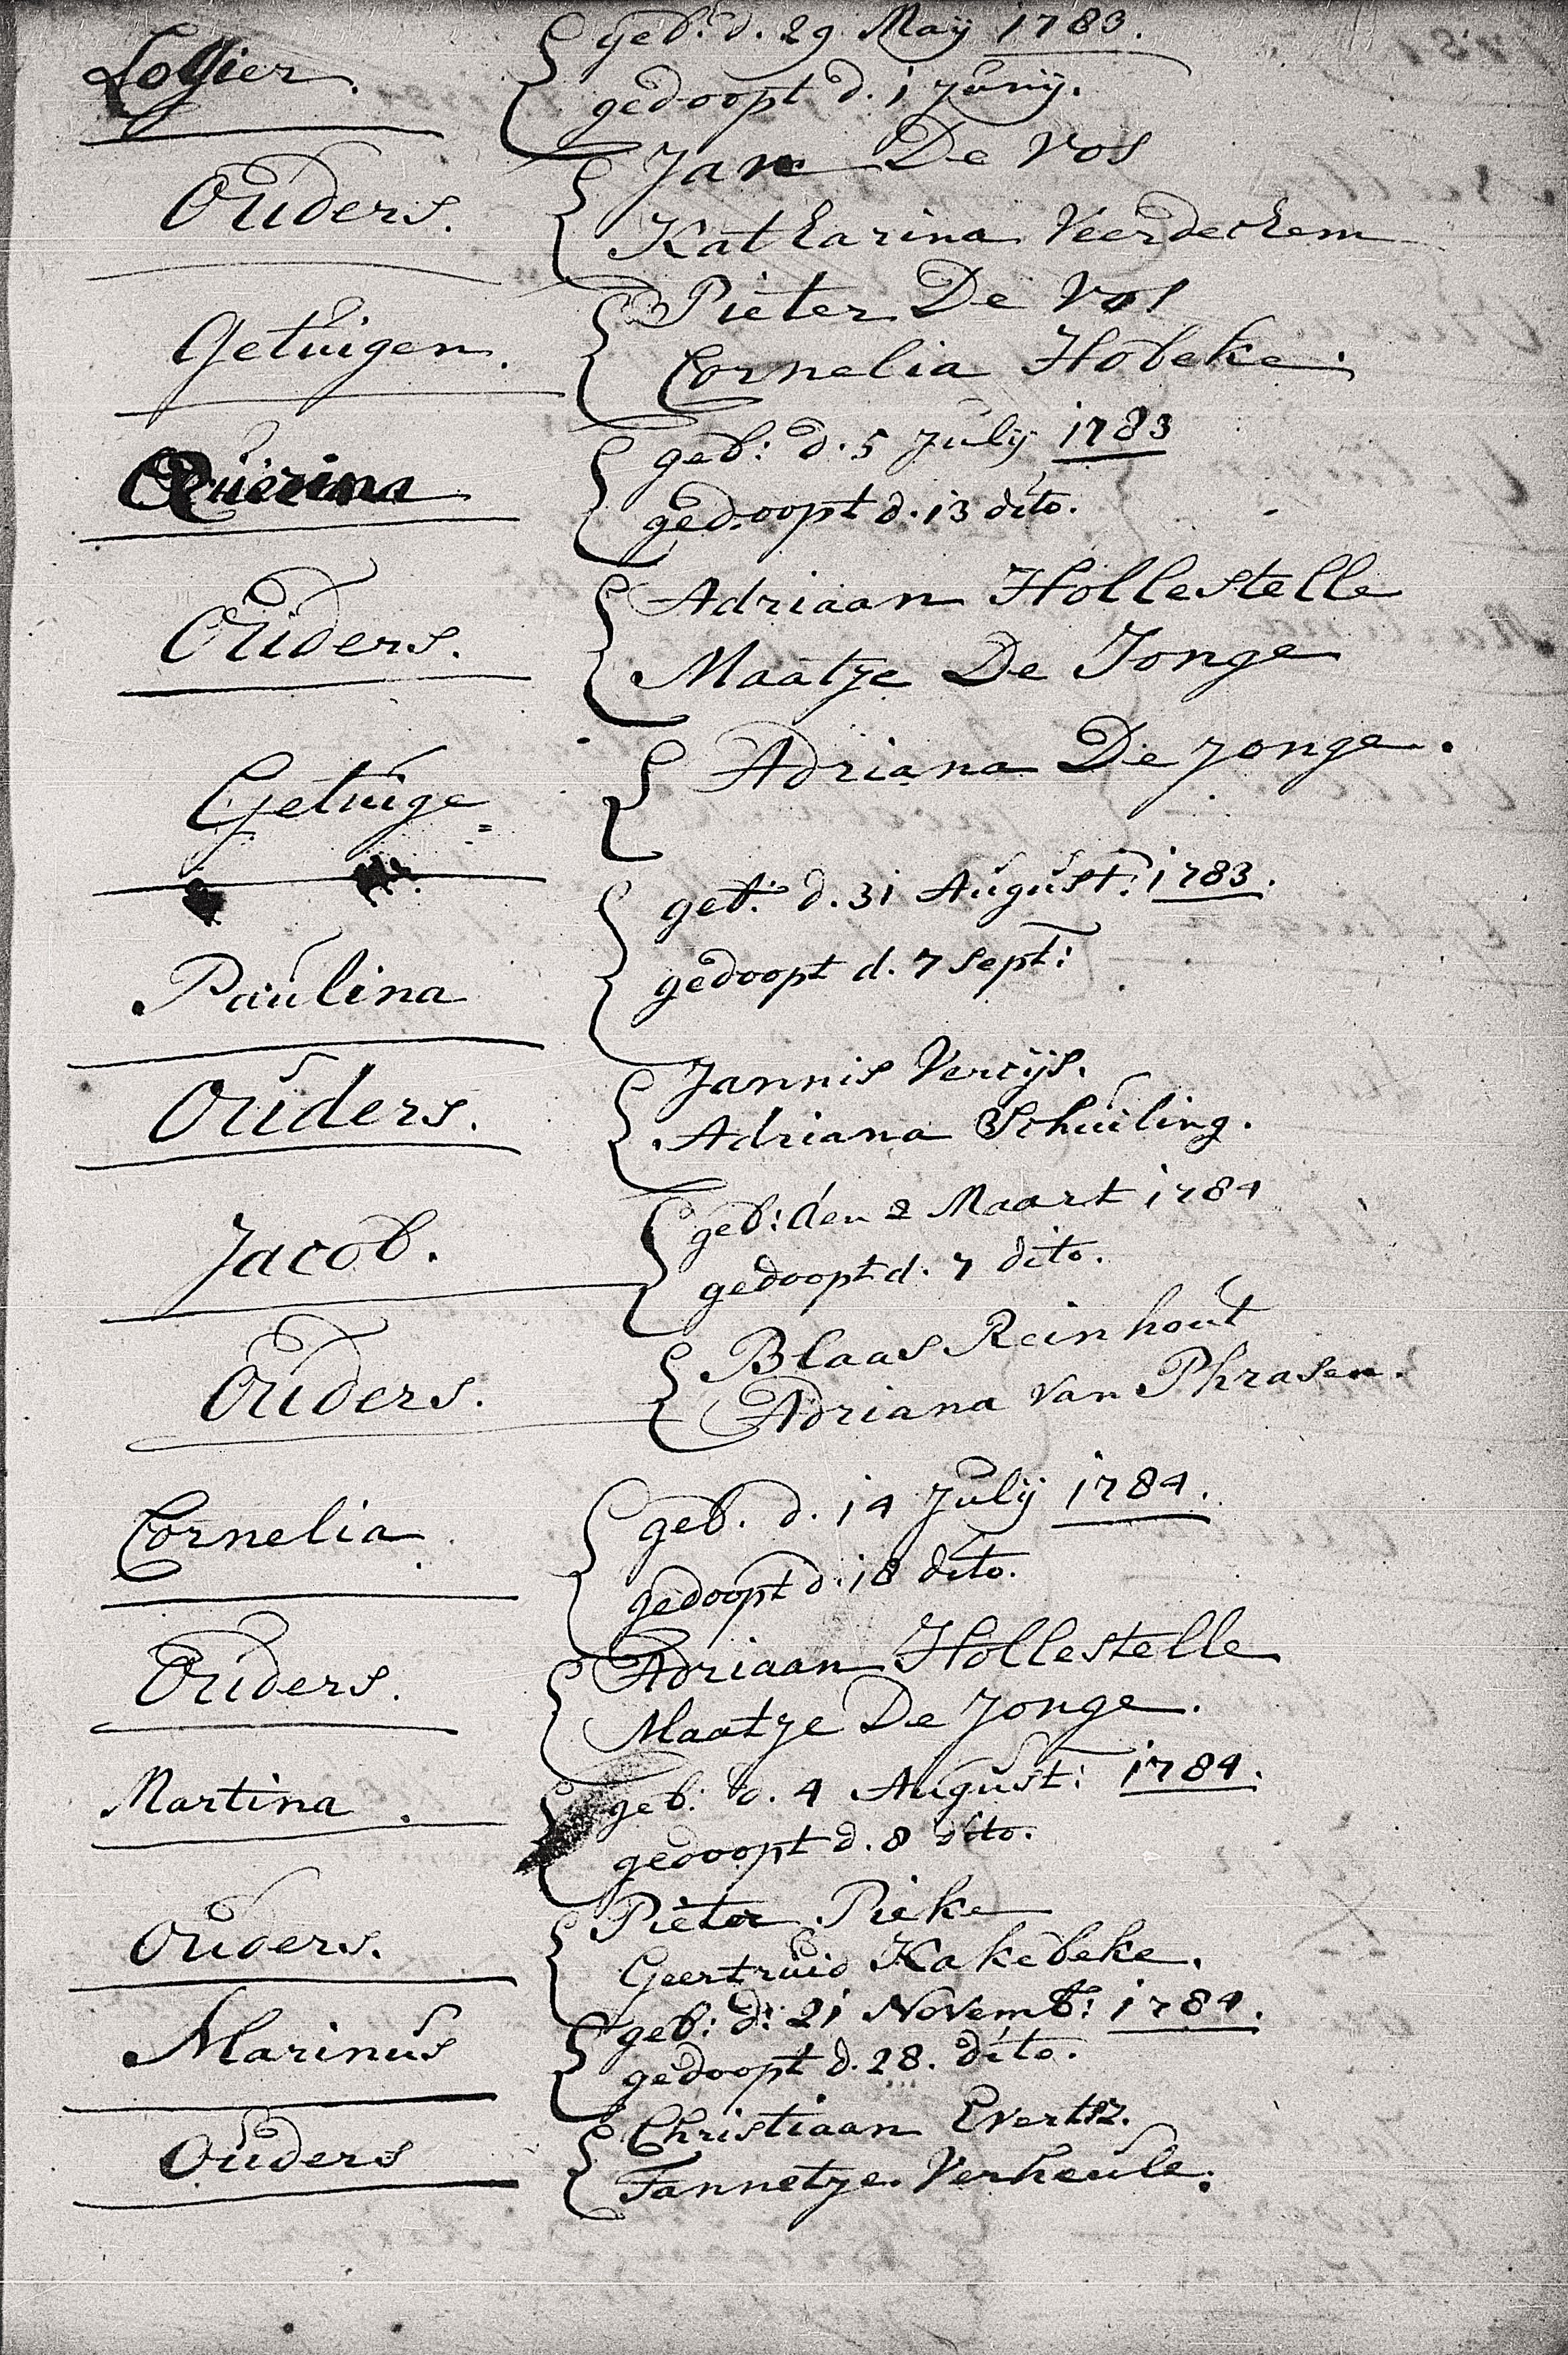 Logier. geb. d. 29 Maÿ 1783.
gedoopt d. 1 Junÿ.
Ouders. Jan De Vos
Katharina Veerdechem
Getuigen. Pieter De Vos
Cornelia Hobeke.
Querina geb: d. 5 Julÿ 1783
gedoopt d. 13 dito.
Ouders. Adriaan Hollestelle
Maatje De Jonge
Getuige Adriana De Jonge.
geb: d. 31 August: 1783.
Paulina gedoopt d. 7 Sept:
Ouders. Jannis Vercÿs.
Adriana Schuiling.
Jacob. geb: den 2 Maart 1784
gedoopt d. 7 dito.
Ouders. Blaas Reinhout
Adriana van Phrasen.
Cornelia geb. d. 14 Julÿ 1784.
gedoopt d. 18 dito.
Ouders. Adriaan Hollestelle
Maatje De Jonge.
Martina. geb: d. 4 August: 1784.
gedoopt d. 8 dito.
Ouders. Pieter Pieke
Geertruid Kakebeke.
Marinus geb: d: 21 Novemb: 1784.
gedoopt d. 28. dito.
Ouders Christiaan Evertsz.
Tannetje Verheule.